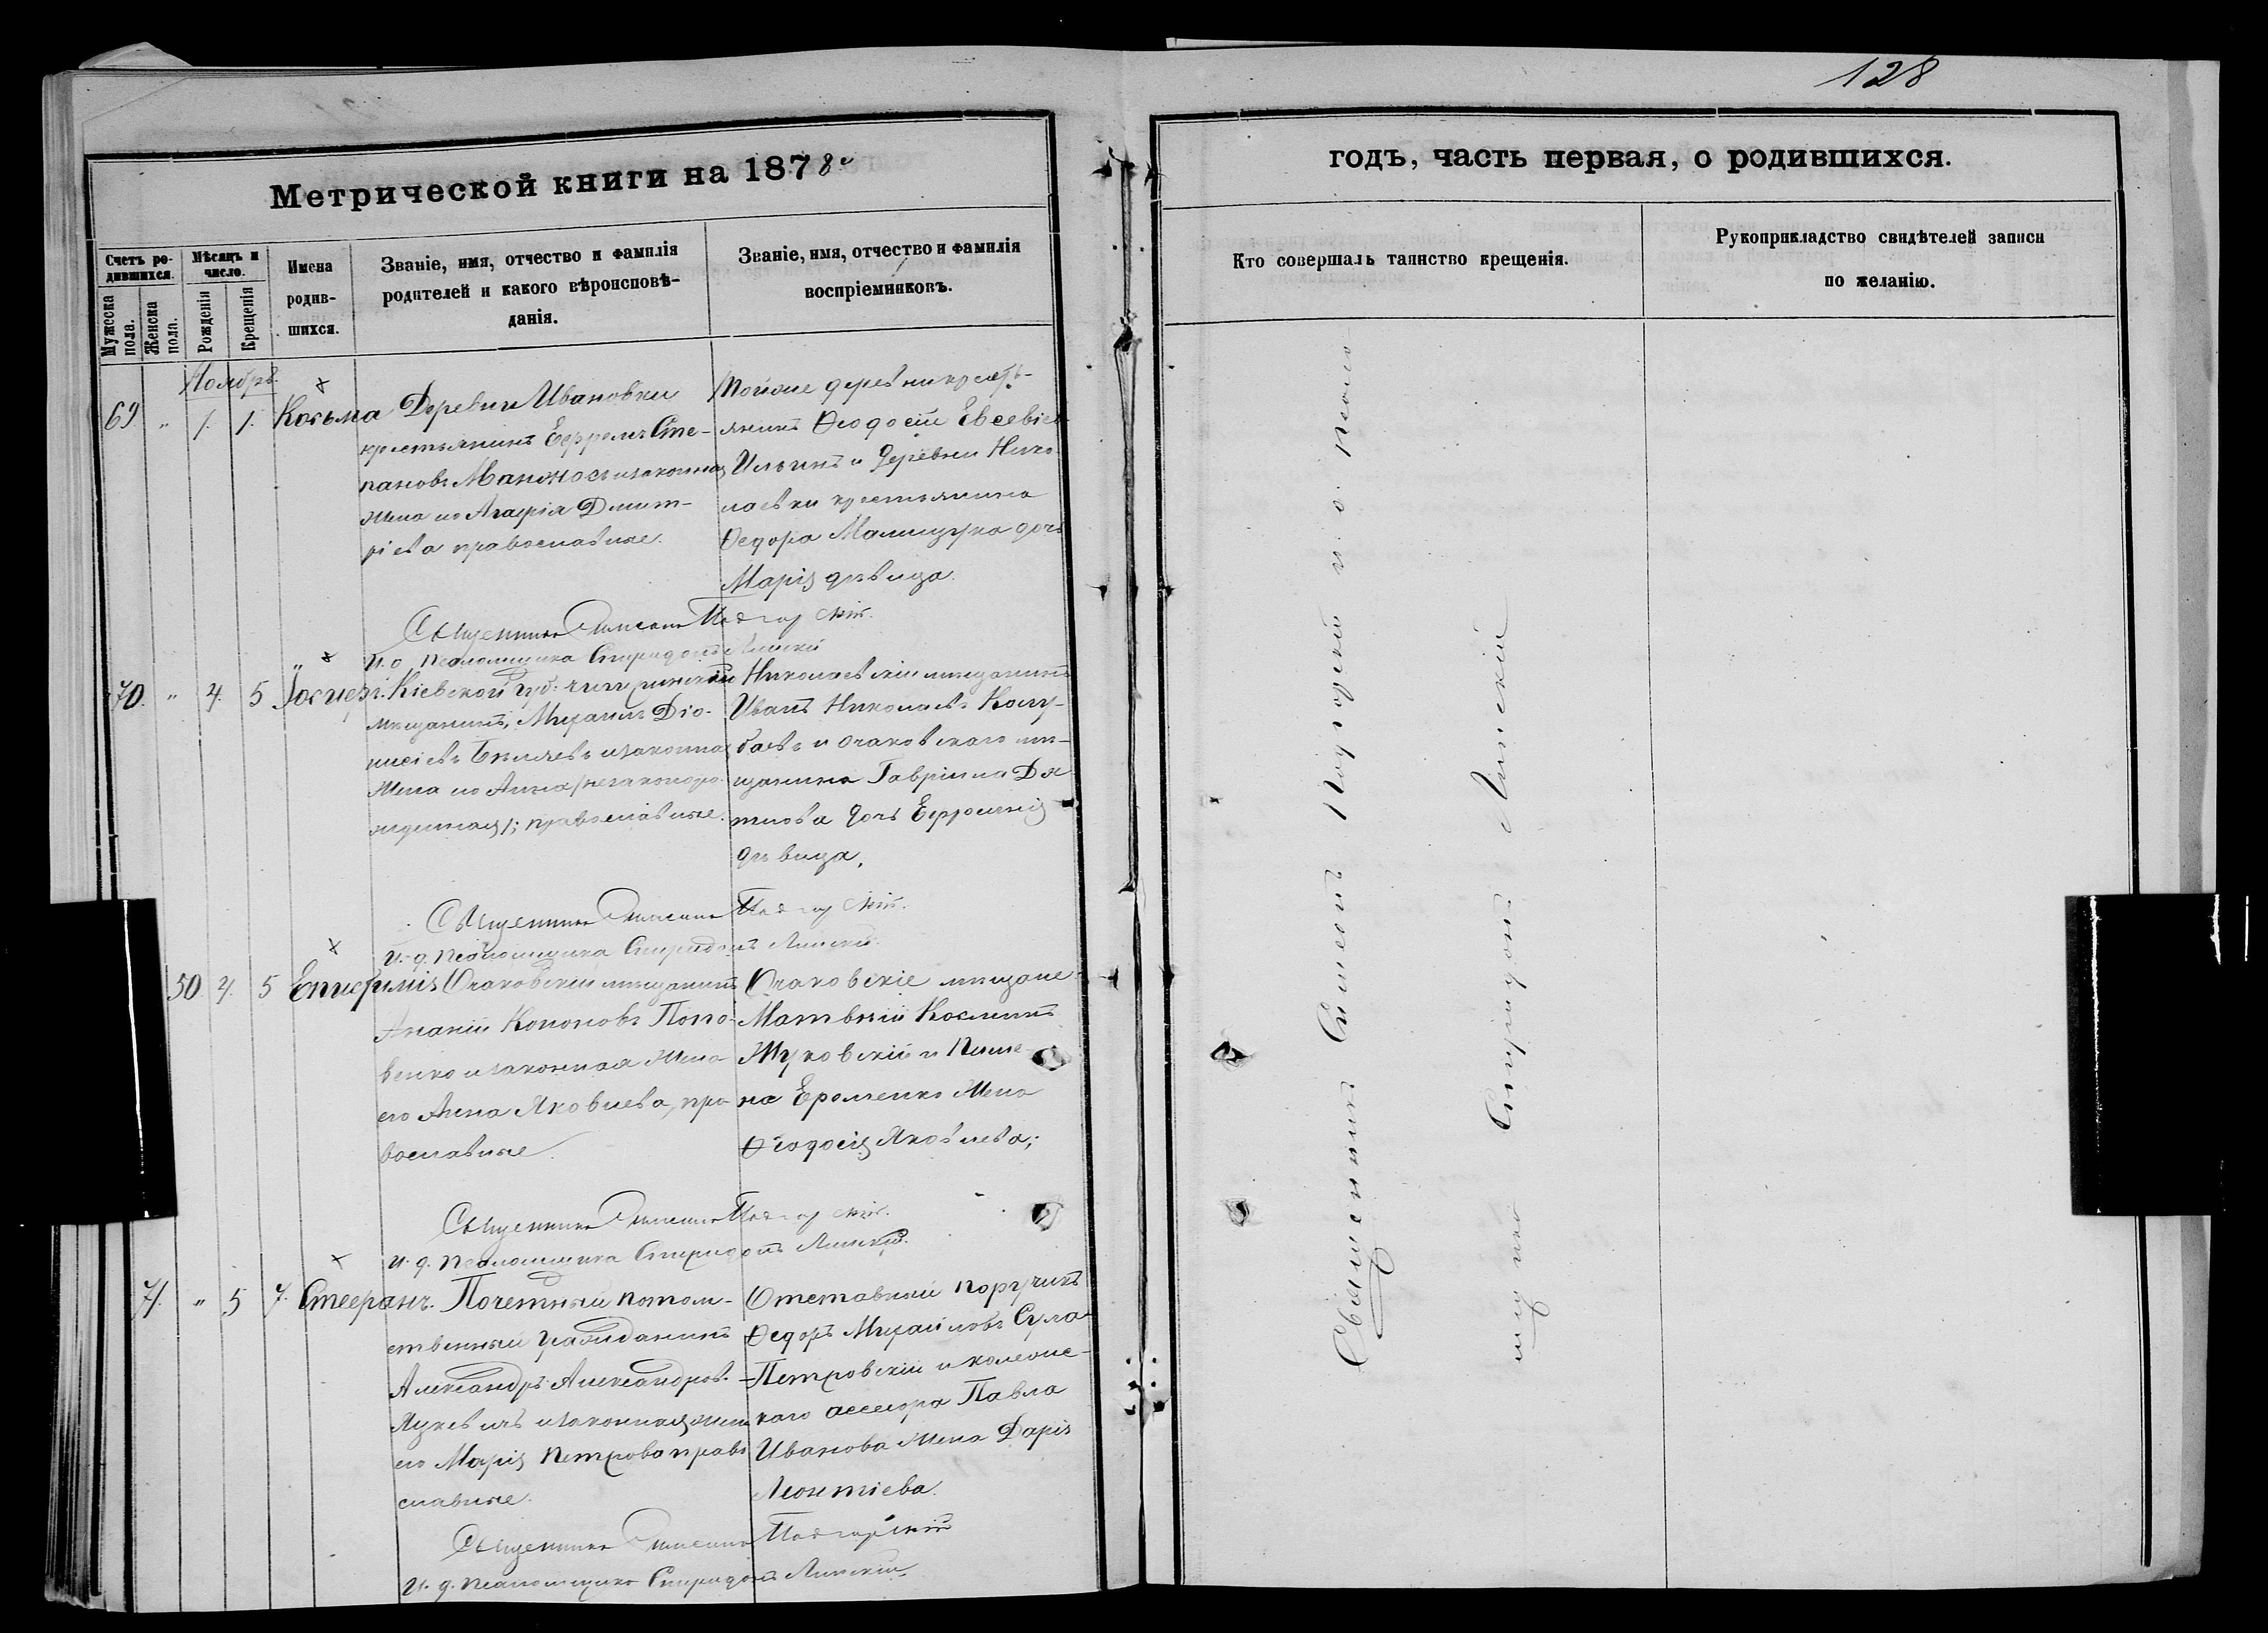 128
Метрической книги на 1878й
годъ, часть первая, о родившихся.
Счетъ ро-
дившихся.
Мужеска пола.
Женска пола.
Мѣсяцъ и
число.
Рожденія
Крещенія
Имена
родив-
шихся.
Званіе, имя, отчество и фамилія
родителей и какого вѣроисповѣ-
данія.
Званіе, имя, отчество и фамилія
воспріемниковъ.
Кто совершалъ таинство крещенія.
Рукоприкладство свидѣтелей записи
по желанію.
Ноябрь
69 " 1. 1. Косьма
Деревни Ивановки
крестьянинъ Ефремъ Сте-
пановъ и законная
жена его Агафія Димит-
ріева православные.
Тойже деревни кресть-
янинъ Ѳеодосій Евсевіев
Ильинъ и деревни Нико
лаевки крестьянина
Ѳедора дочь
Марія дѣвица.
Священникъ Симеонъ Подгорскій.
И. о. псаломщика Спиридонъ Липскій
70. " 4. 5 Іосифъ.
Кіевской губ. чигиринскій
мѣщанинъ, Михаилъ Діо-
нисіевъ Бѣляевъ и законная
жена его Анна (незаконоро-
жденная); православные.
Николаевскій мѣщанинъ
Иванъ Николаевъ
и очаковскаго мѣ-
щанина Гавріила Дя
тлова дочь Ефросинія
дѣвица.
Священникъ Симеонъ Подгорскій.
И. д. псаломщика Спиридонъ Липскій.
50. 4. 5 Епистимія
Очаковскій мѣщанинъ
Ананій Кононовъ Попо-
венко и законная жена
его Анна Яковлева, пра-
вославные
Очаковскіе мѣщане
Матвѣй Косминъ
Жуковскій и
Ероменко жена
Ѳеодосія Яковлева;
Священникъ Симеонъ Подгорскій.
И. д. псаломщика Спиридонъ Липскій.
71. " 5 7. Стефанъ.
Почетный потом-
ственный гражданинъ
Александръ Александров.
и законная жена
его Марія Петрова право
славные.
Отставной поручикъ
Ѳедоръ Михайловъ Сула-
Петровскій и коллеж-
каго ассесора Павла
Иванова жена Дарія
Леонтіева.
Священникъ Симеонъ Подгорскій
И. д. псаломщика Спиридонъ Липскій.
Священникъ Симеонъ Подгорскій и. о. псало
мщика Спиридонъ Липскій